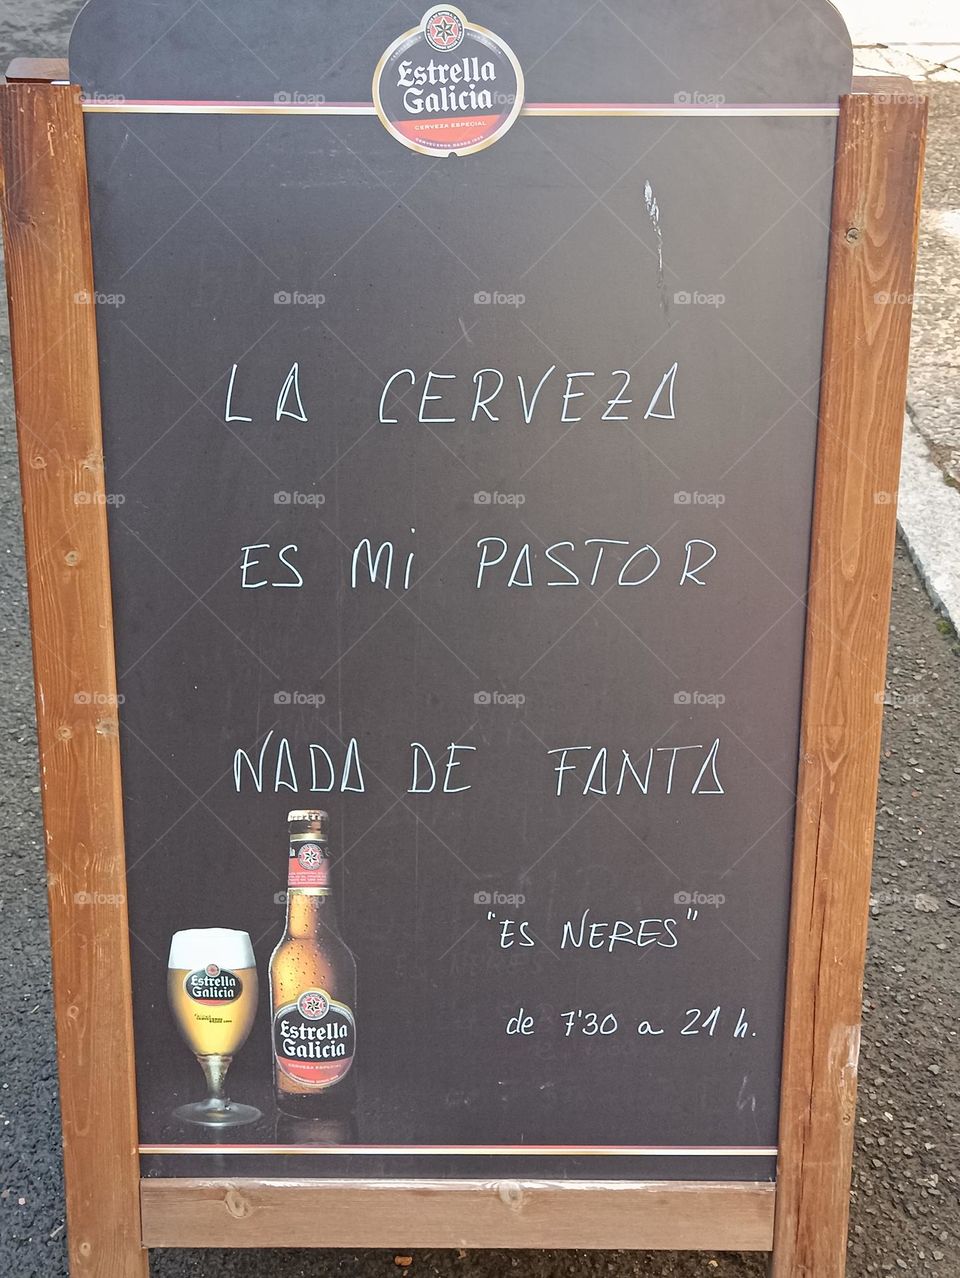 Estrella
Galicia
CERVEZA ESPECIAL
LA CERVEZA
ES Mi PASTOR
NADA DE FANTA
"ES NERES"
de 7'30 a 21 h.
Estrella
Galicia
Estrella
Galicia
CERVEZA ESPECIAL
foap